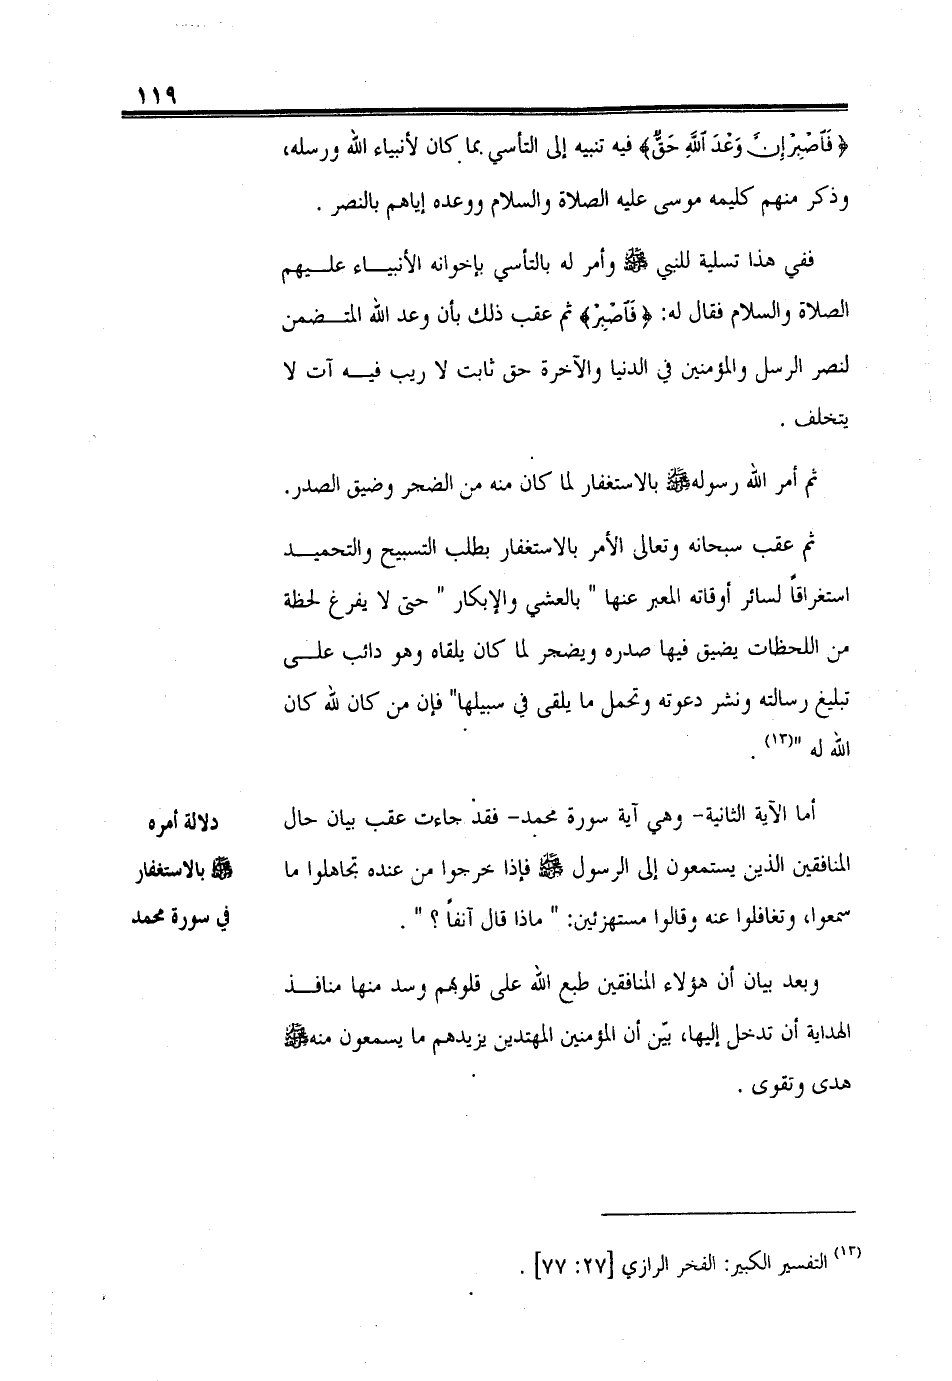 ١١٩
﴿فَٱصۡبِرۡ إِنَّ وَعۡدَ ٱللَّهِ حَقّٞ﴾ فيه تنبيه إلى التأسي بما كان لأنبياء الله ورسله،
وذكر منهم كليمه موسى عليه الصلاة والسلام ووعده إياهم بالنصر .
ففي هذا تسلية للنبي ﷺ وأمر له بالتأسي بإخوانه الأنبيـــاء علـــيهم
الصلاة والسلام فقال له: ﴿فَٱصۡبِرۡ﴾ ثم عقب ذلك بأن وعد الله المتــضمن
لنصر الرسل والمؤمنين في الدنيا والآخرة حق ثابت لا ريب فيـــه آت لا
يتخلف .
ثم أمر الله رسوله ﷺ بالاستغفار لما كان منه من الضجر وضيق الصدر.
ثم عقب سبحانه وتعالى الأمر بالاستغفار بطلب التسبيح والتحميــد
استغراقاً لسائر أوقاته المعبر عنها " بالعشي والإبكار " حتى لا يفرغ لحظة
من اللحظات يضيق فيها صدره ويضجر لما كان يلقاه وهو دائب علـــى
تبليغ رسالته ونشر دعوته وتحمل ما يلقى في سبيلها" فإن من كان لله كان
الله له "(١٣) .
أما الآية الثانية- وهي آية سورة محمد- فقد جاءت عقب بيان حال
المنافقين الذين يستمعون إلى الرسول ﷺ فإذا خرجوا من عنده تجاهلوا ما
سمعوا، وتغافلوا عنه وقالوا مستهزئين: " ماذا قال آنفاً ؟ " .
دلالة أمره
ﷺ بالاستغفار
في سورة محمد
وبعد بيان أن هؤلاء المنافقين طبع الله على قلوبهم وسد منها منافـــذ
الهداية أن تدخل إليها، بيّن أن المؤمنين المهتدين يزيدهم ما يسمعون منه ﷺ
هدى وتقوى .
(١٣) التفسير الكبير: الفخر الرازي [٢٧: ٧٧] .